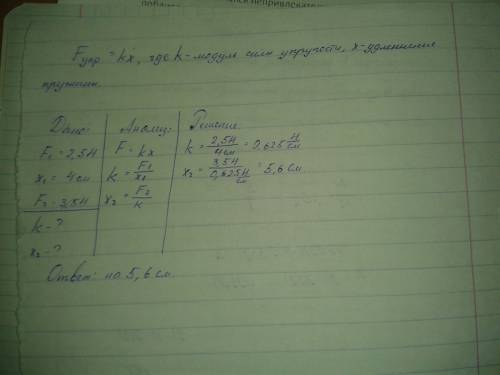 непривлекате
Fупр = kx, где k - модуль силы упругости, x - удлинение
пружины.
Дано: Анализ: Решение
F₁ = 2,5Н F = kx k = 2,5Н/4см = 0,625 Н/см
x₁ = 4см k = F₁/x₁ x₂ = 3,5Н/0,625Н/см = 5,6 см.
F₂ = 3,5Н x₂ = F₂/k
k - ?
x₂ - ?
Ответ: на 5,6 см.